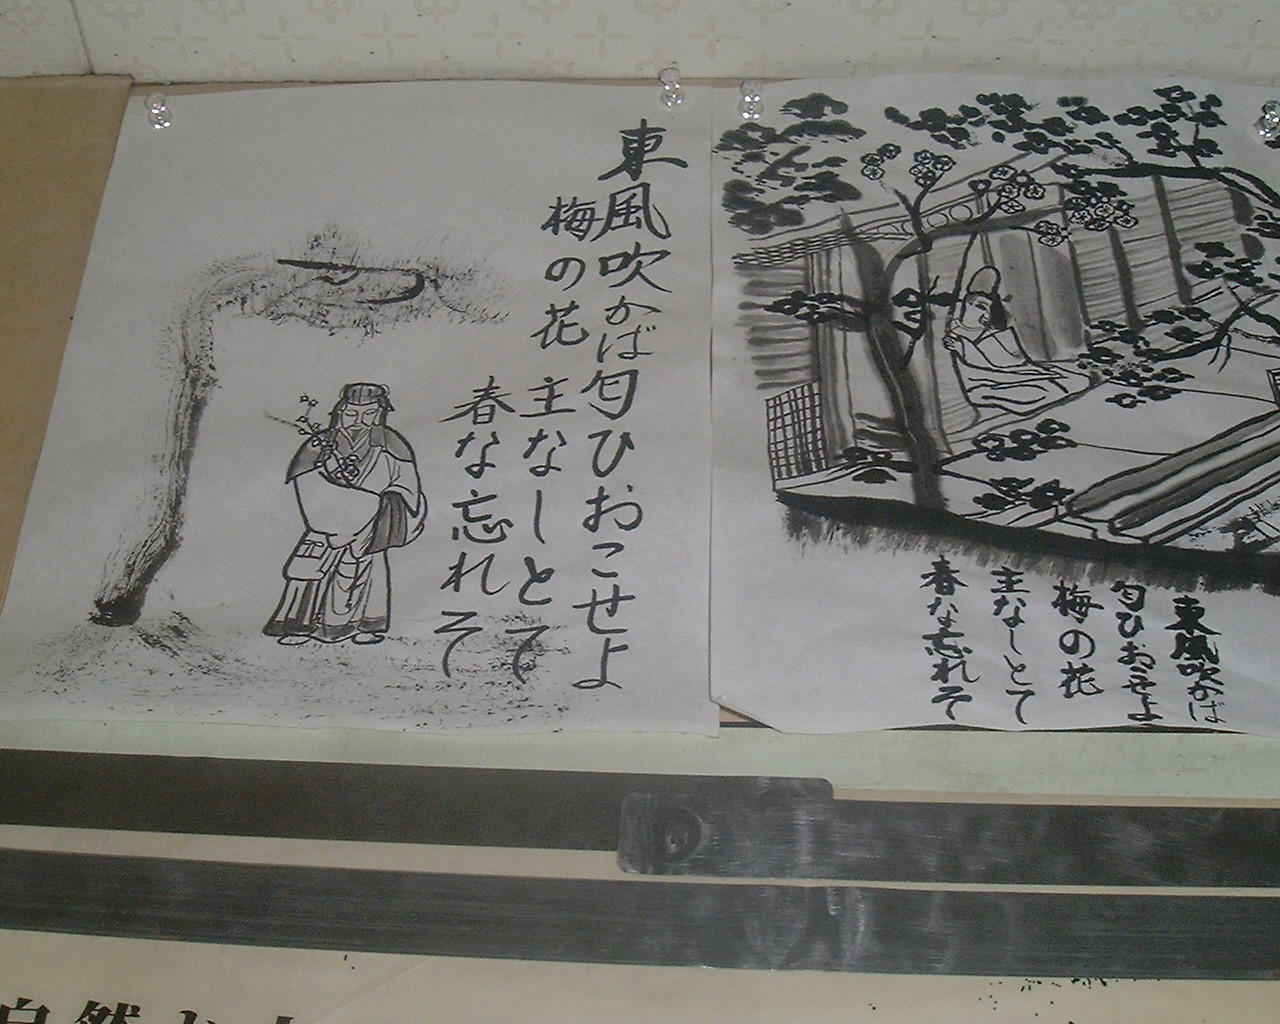 東風吹かば匂ひおこせよ
梅の花 主なしとて
春な忘れそ
東風吹かば
匂ひおこせよ
梅の花
主なしとて
春な忘れそ
自然